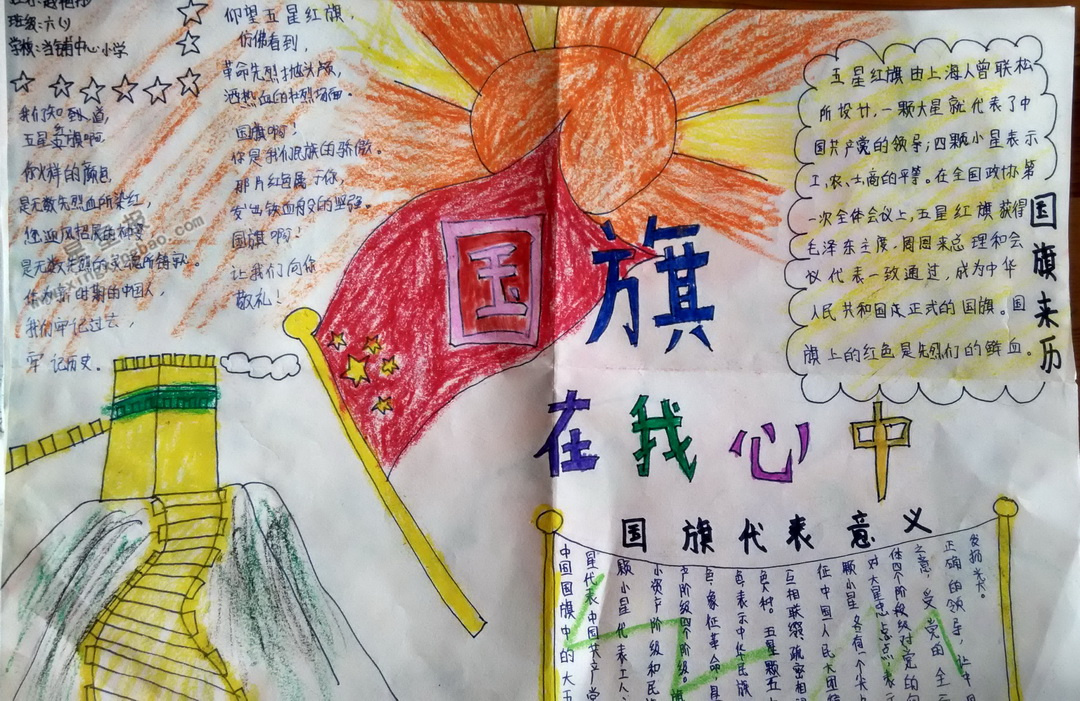 班级:六(1)
学校:当铺中心小学
我们知道,
五星红旗啊
你火样的颜色
是无数先烈血所染红,
您迎风招展的种子
是无数先烈的灵魂所铸就。
作为新时期的中国人,
我们牢记过去,
牢记历史。
仰望五星红旗,
仿佛看到,
革命先烈抛头颅,
洒热血的壮烈场面。
国旗啊!
你是我们民族的骄傲。
那片红色属于你,
发出铁血般的坚强。
国旗啊!
让我们向你
敬礼!
国旗
在我心中
五星红旗由上海人曾联松
所设计,一颗大星就代表了中
国共产党的领导;四颗小星表示
工、农、士、商的平等。在全国政协第
一次全体会议上,五星红旗获得
毛泽东主席、周恩来总理和会
议代表一致通过,成为中华
人民共和国成正式的国旗。国
旗上的红色是先烈们的鲜血。
国旗来历
国旗代表意义
中国国旗中的大五
星代表中国共产党
颗小星代表工人、
小资产阶级和民族
产阶级四个阶级。旗
色象征革命,星
色表示中华民族
色人种。五星颗五
互相联缀、疏密相
征中国人民大团结
颗小星各有一个尖
对大星中心点,表示
体四个阶级对党的向
之意,受党的全
正确的领导,让中国
发扬光大。